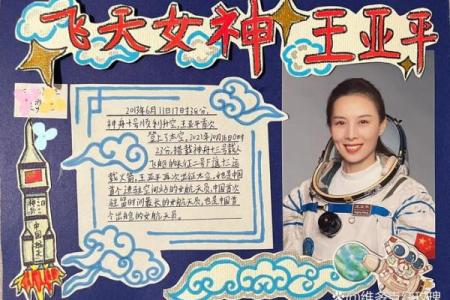 飞天女神 王亚平
2013年6月11日17时38分,
神舟十号顺利升空,王亚平首次
登上了太空。2021年10月16日0时
23分,搭载神舟十三号载人
飞船的长征二号F遥十三运
载火箭,王亚平再次出征太空,她是中国
首个进驻空间站的女航天员,中国首次
驻留时间最长的女航天员,也是中国
首个出舱的女航天员。
中国航天